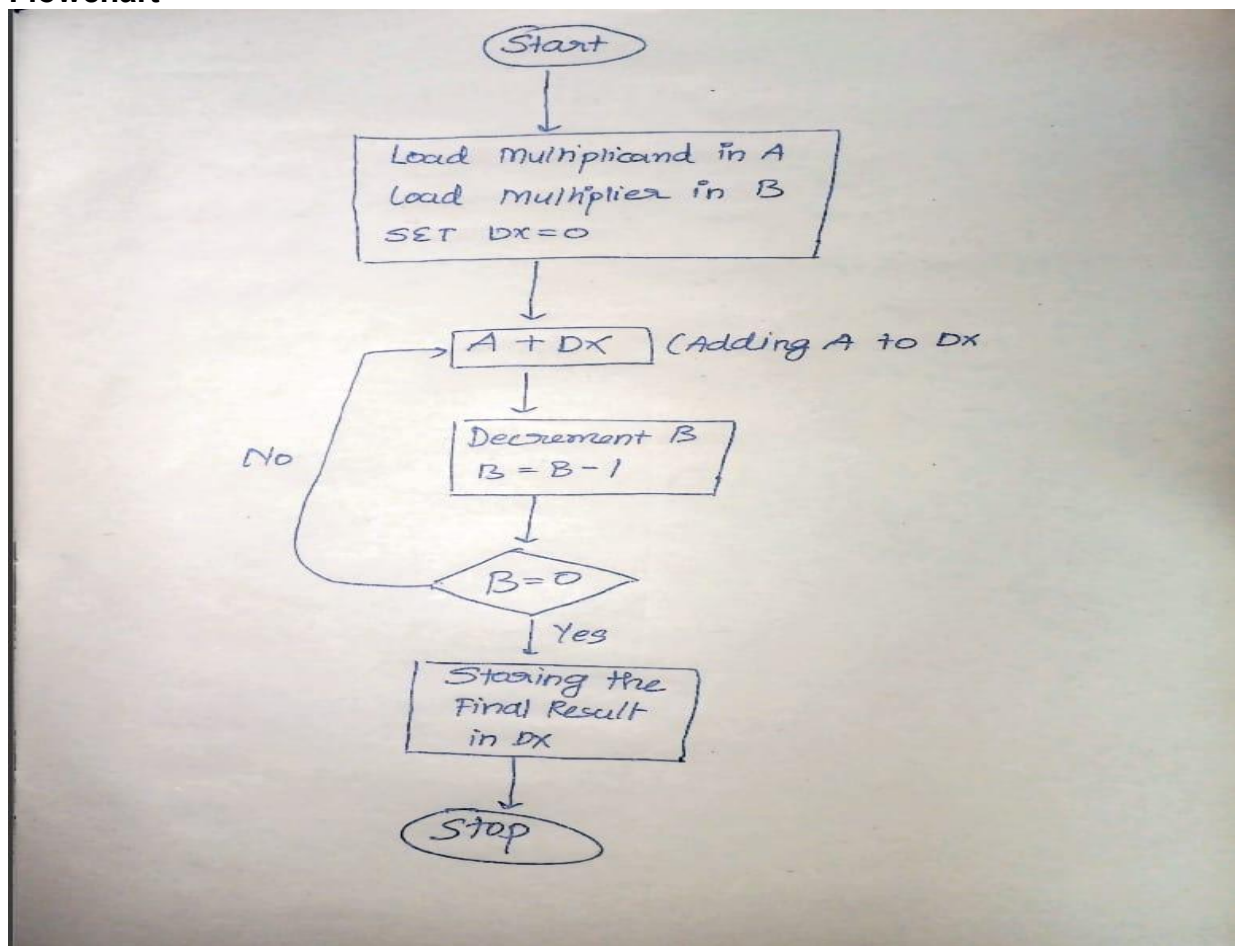 Flowchart
Start
Load Multiplicand in A
Load Multiplier in B
SET DX=0
A + DX
(Adding A to DX
Decrement B
B = B-1
No
B=0
Yes
Storing the
Final Result
in DX
Stop